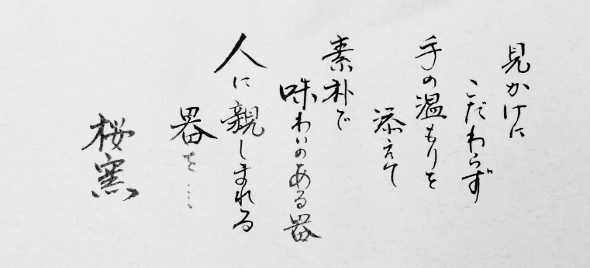 見かけに
こだわらず
手の温もりを
添えて
素朴で
味わいのある器
人に親しまれる
器を…
桜窯